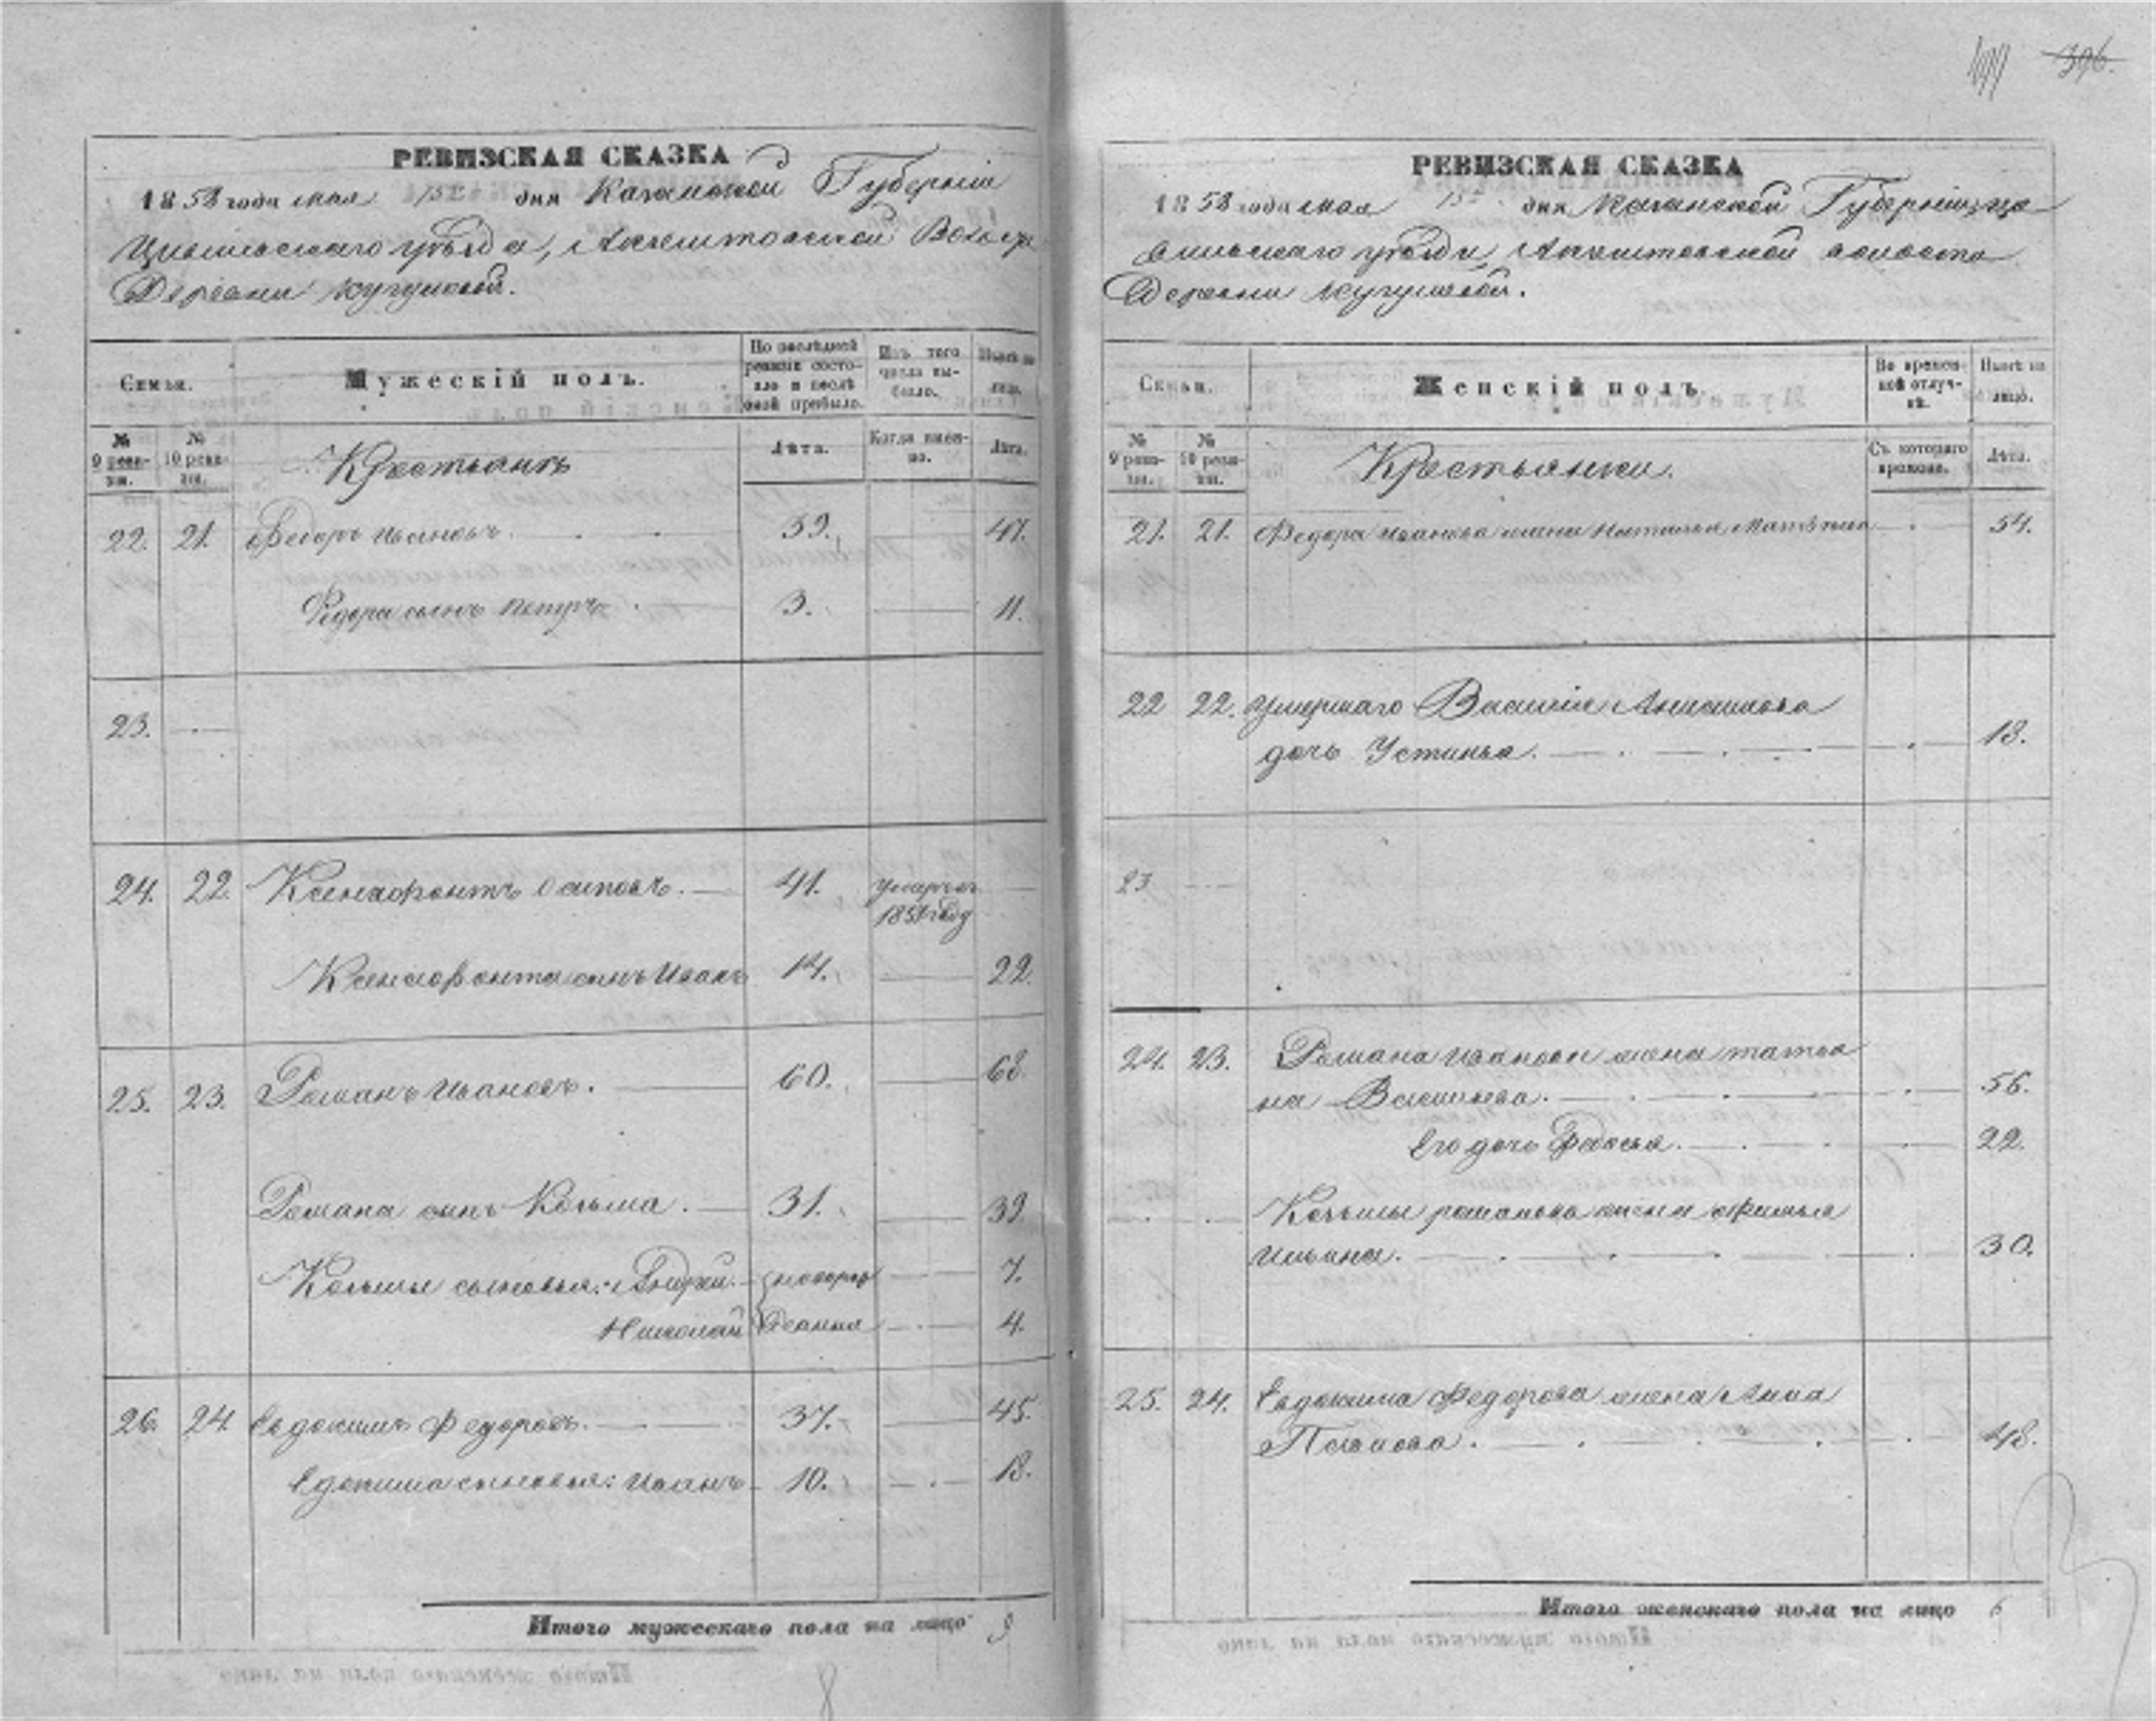 396.
РЕВИЗСКАЯ СКАЗКА
1858 года мая 15 дня Казанской Губернiи
Цивильскаго уѣзда,
Деревни
Семьи.
Мужескiй полъ.
По послѣдней ревизiи состояло и послѣ оной прибыло.
Изъ того числа выбыло.
Нынѣ на лицо.
№ 9 ревизiи.
№ 10 ревизiи.
Крестьянъ
Лѣта.
Когда именно.
Лѣта.
22. 21. Федоръ Ивановъ. 39. 47.
Федора сынъ Петръ. 3. 11.
23.
24. 22. Ксенофонтъ Осиповъ. 41. умеръ въ
году
Ксенофонта сынъ Иванъ 14. 22.
25. 23. Романъ Ивановъ. 60. 68.
Романа сынъ Козьма. 31. 39.
Козьмы сыновья: Андрей. новорож 7.
Николай денные 4.
26. 24. Евдокимъ Федоровъ. 37. 45.
Евдокима сыновья: Иванъ 10. 18.
Итого мужескаго пола на лицо 9
8
РЕВИЗСКАЯ СКАЗКА
1858 года мая 15 дня Казанской Губернiи Ци
вильскаго уѣзда, волости
Деревни
Семьи.
Женскiй полъ.
Во временной отлучкѣ.
Нынѣ на лицо.
№ 9 ревизiи.
№ 10 ревизiи.
Крестьянки.
Съ котораго времени.
Лѣта.
21. 21. Федора Иванова жена Наталья 54.
22 22. Умершаго Василiя
дочь Устинья. 18.
23
24. 23. Романа Иванова жена Татья
на Васильева. 56.
Его дочь Федосья. 22.
Козьмы Романова жена Афимья
Ильина. 30.
25. 24. Евдокима Федорова жена Анна
48.
Итого женскаго пола на лицо 6